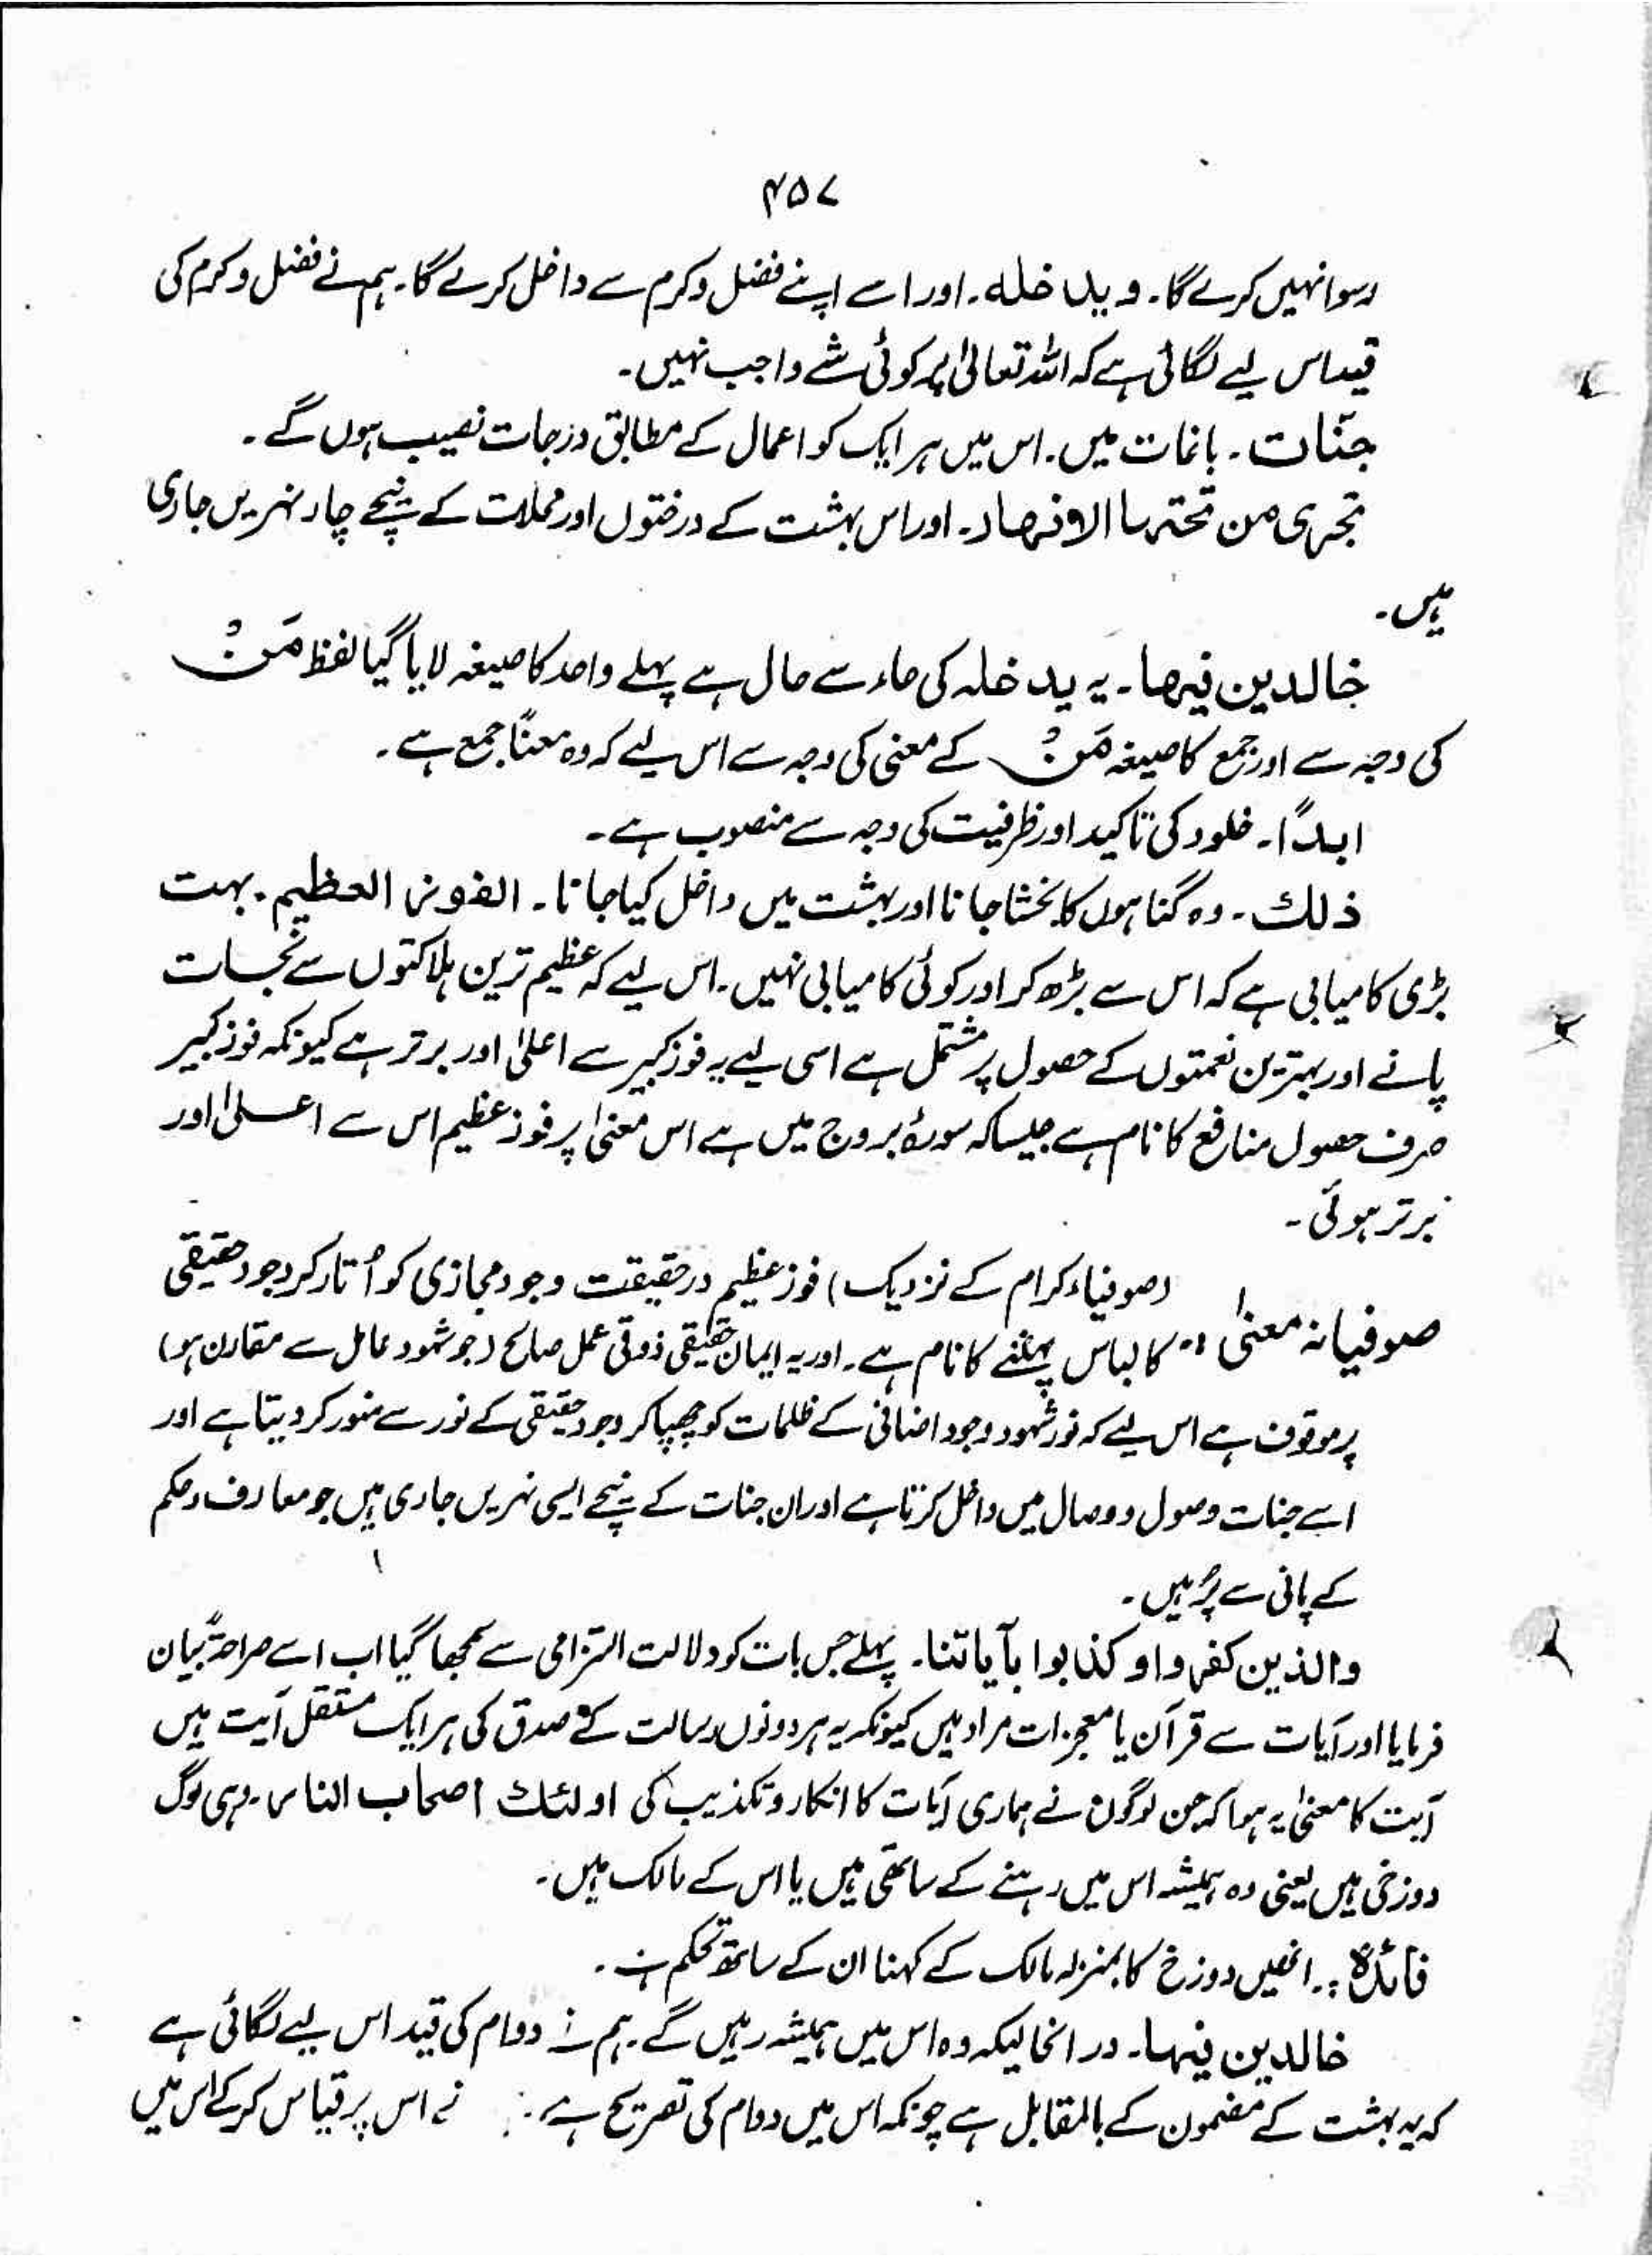 ۴۵۷
رسوا نہیں کرے گا۔ ویدخلہ۔ اور اسے اپنے فضل وکرم سے داخل کرے گا۔ ہم نے فضل وکرم کی
قید اس لیے لگائی ہے کہ اللہ تعالیٰ پر کوئی شے واجب نہیں۔
جنّات۔ باغات میں۔ اس میں ہر ایک کو اعمال کے مطابق درجات نصیب ہوں گے۔
تجری من تحتہا الانہار۔ اور اس بہشت کے درختوں اور محلات کے نیچے چار نہریں جاری
ہیں۔
خالدین فیہا۔ یہ یدخلہ کی ھاء سے حال ہے پہلے واحد کا صیغہ لایا گیا لفظ مَنْ
کی وجہ سے اور جمع کا صیغہ مَنْ کے معنی کی وجہ سے اس لیے کہ وہ معنًا جمع ہے۔
ابدًا۔ خلود کی تاکید اور ظرفیت کی وجہ سے منصوب ہے۔
ذلك۔ وہ گناہوں کا بخشا جانا اور بہشت میں داخل کیا جانا۔ الفوز العظیم۔ بہت
بڑی کامیابی ہے کہ اس سے بڑھ کر اور کوئی کامیابی نہیں۔ اس لیے کہ عظیم ترین ہلاکتوں سے نجات
پانے اور بہترین نعمتوں کے حصول پر مشتمل ہے اسی لیے یہ فوز کبیر سے اعلیٰ اور برتر ہے کیونکہ فوز کبیر
صرف حصول منافع کا نام ہے جیسا کہ سورۂ بروج میں ہے اس معنیٰ پر فوز عظیم اس سے اعلیٰ اور
برتر ہوئی۔
(صوفیاء کرام کے نزدیک) فوز عظیم درحقیقت وجود مجازی کو اُتار کر وجود حقیقی
صوفیانہ معنیٰ :۔ کا لباس پہننے کا نام ہے۔ اور یہ ایمان حقیقی ذوقی عمل صالح (جو شہود عامل سے مقارن ہو)
پر موقوف ہے اس لیے کہ نور شہود وجود اضافی کے ظلمات کو چھپا کر وجود حقیقی کے نور سے منور کر دیتا ہے اور
اسے جنات وصول و وصال میں داخل کرتا ہے اور ان جنات کے نیچے ایسی نہریں جاری ہیں جو معارف و حکم
کے پانی سے پُر ہیں۔
والذین کفروا و کذبوا بآیاتنا۔ پہلے جس بات کو دلالت التزامی سے سمجھا گیا اب اسے صراحۃً بیان
فرمایا اور آیات سے قرآن یا معجزات مراد ہیں کیونکہ یہ ہر دونوں رسالت کے صدق کی ہر ایک مستقل آیت ہیں
آیت کا معنیٰ یہ ہوا کہ جن لوگوں نے ہماری آیات کا انکار و تکذیب کی اولئك اصحاب النار۔ وہی لوگ
دوزخی ہیں یعنی وہ ہمیشہ اس میں رہنے کے ساتھی ہیں یا اس کے مالک ہیں۔
فائدہ :۔ انھیں دوزخ کا بمنزلہ مالک کے کہنا ان کے ساتھ تحکم ہے۔
خالدین فیہا۔ درانحالیکہ وہ اس میں ہمیشہ رہیں گے۔ ہم نے دوام کی قید اس لیے لگائی ہے
کہ یہ بہشت کے مضمون کے بالمقابل ہے چونکہ اس میں دوام کی تصریح ہے نے اس پر قیاس کر کے اس میں